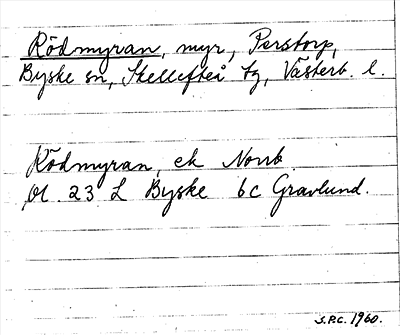 Rödmyran, myr, Perstorp,
Byske sn, Skellefteå tg, Västerb. l.
Rödmyran, ek Norrb
bl. 23 L Byske 6c Gravlund.
S.P.C. 1960.